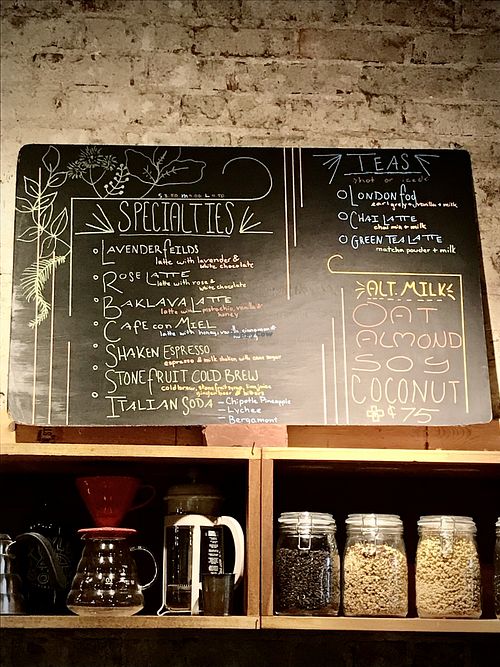 SPECIALTIES
LAVENDER FIELDS
latte with lavender &
white chocolate
ROSE LATTE
latte with rose &
white chocolate
BAKLAVA LATTE
latte with pistachio, vanilla &
honey
CAFE CON MIEL
latte with honey, vanilla, cinnamon &
SHAKEN ESPRESSO
espresso & milk shaken with cane sugar
STONEFRUIT COLD BREW
cold brew, stonefruit syrup, lime juice
ginger beer & bitters
ITALIAN SODA - Chipotle Pineapple
- Lychee
- Bergamont
TEAS
hot or iced
LONDON FOG
earl grey, vanilla + milk
CHAI LATTE
chai mix + milk
GREEN TEA LATTE
matcha powder + milk
ALT. MILK
OAT
ALMOND
SOY
COCONUT
+ ¢75